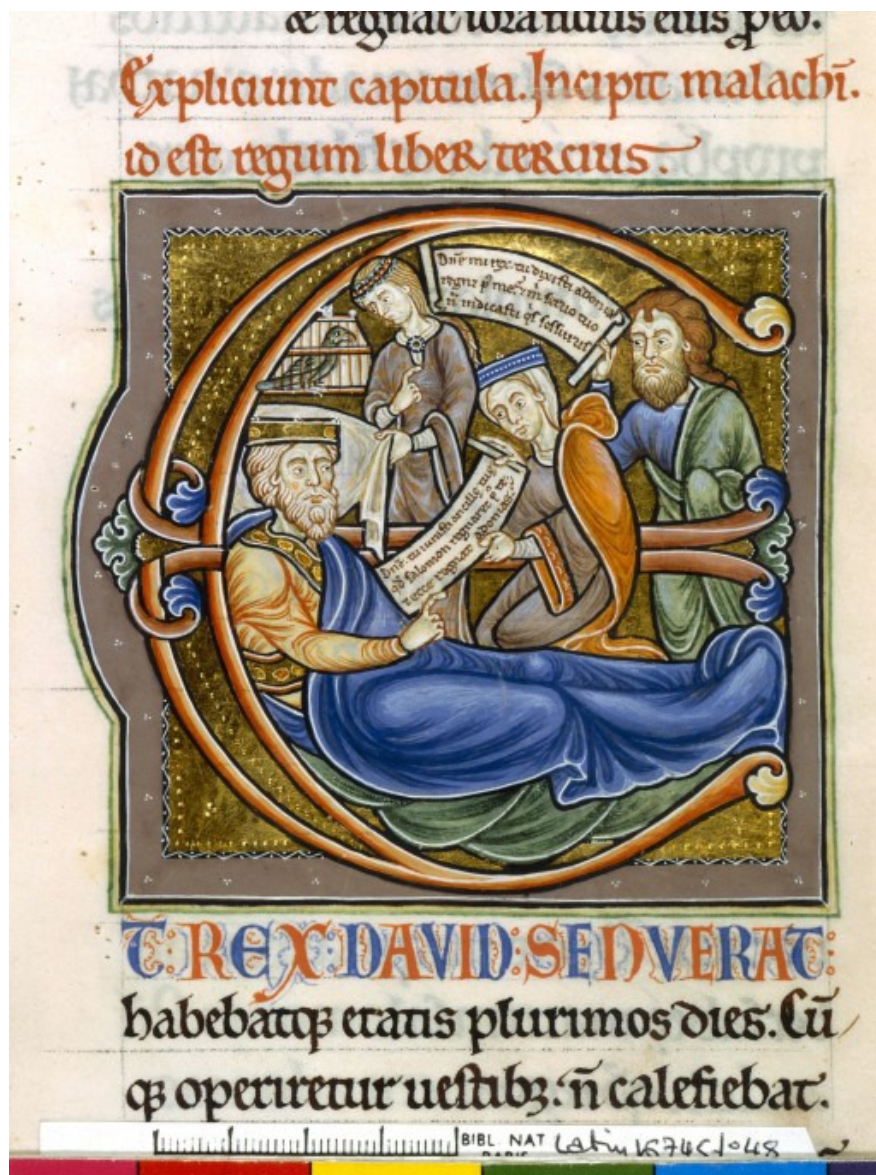 & regnat ioram filius eius p̱ eo.
Expliciunt capitula. Incipit malachī.
id est regum liber tercius.
Dn̄e mi rex. tu dixisti adonia
regnet p̱ me. 
n̄ indicasti
Dn̄e. tu iurasti ancille tue
qđ salomon regnaret p̱ te.
& ecce regnat adonias.
ET: REX: DAVID: SENUERAT:
habebatqꝫ etatis plurimos dies. Cū
qꝫ operiretur uestibꝫ: n̄ calefiebat.
BIBL. NAT
PARIS
Latin 16746 f° 48